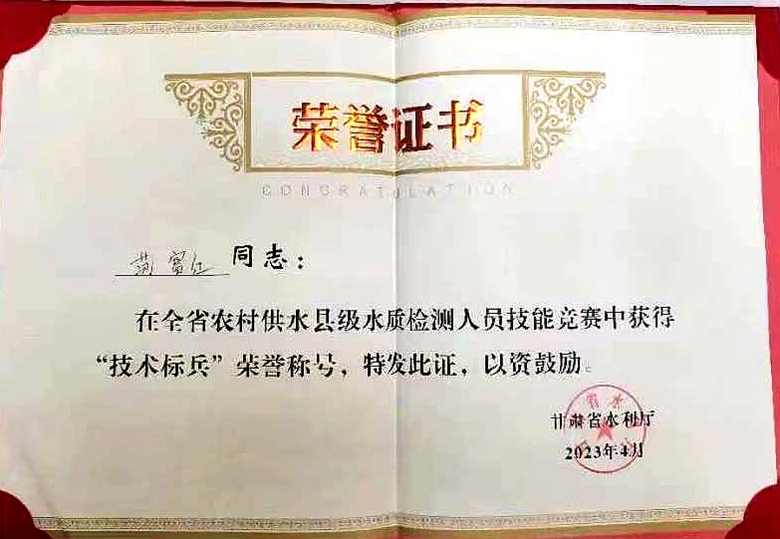 荣誉证书
CONGRATULATION
同志：
在全省农村供水县级水质检测人员技能竞赛中获得
“技术标兵”荣誉称号，特发此证，以资鼓励。
甘肃省水利厅
2023年4月